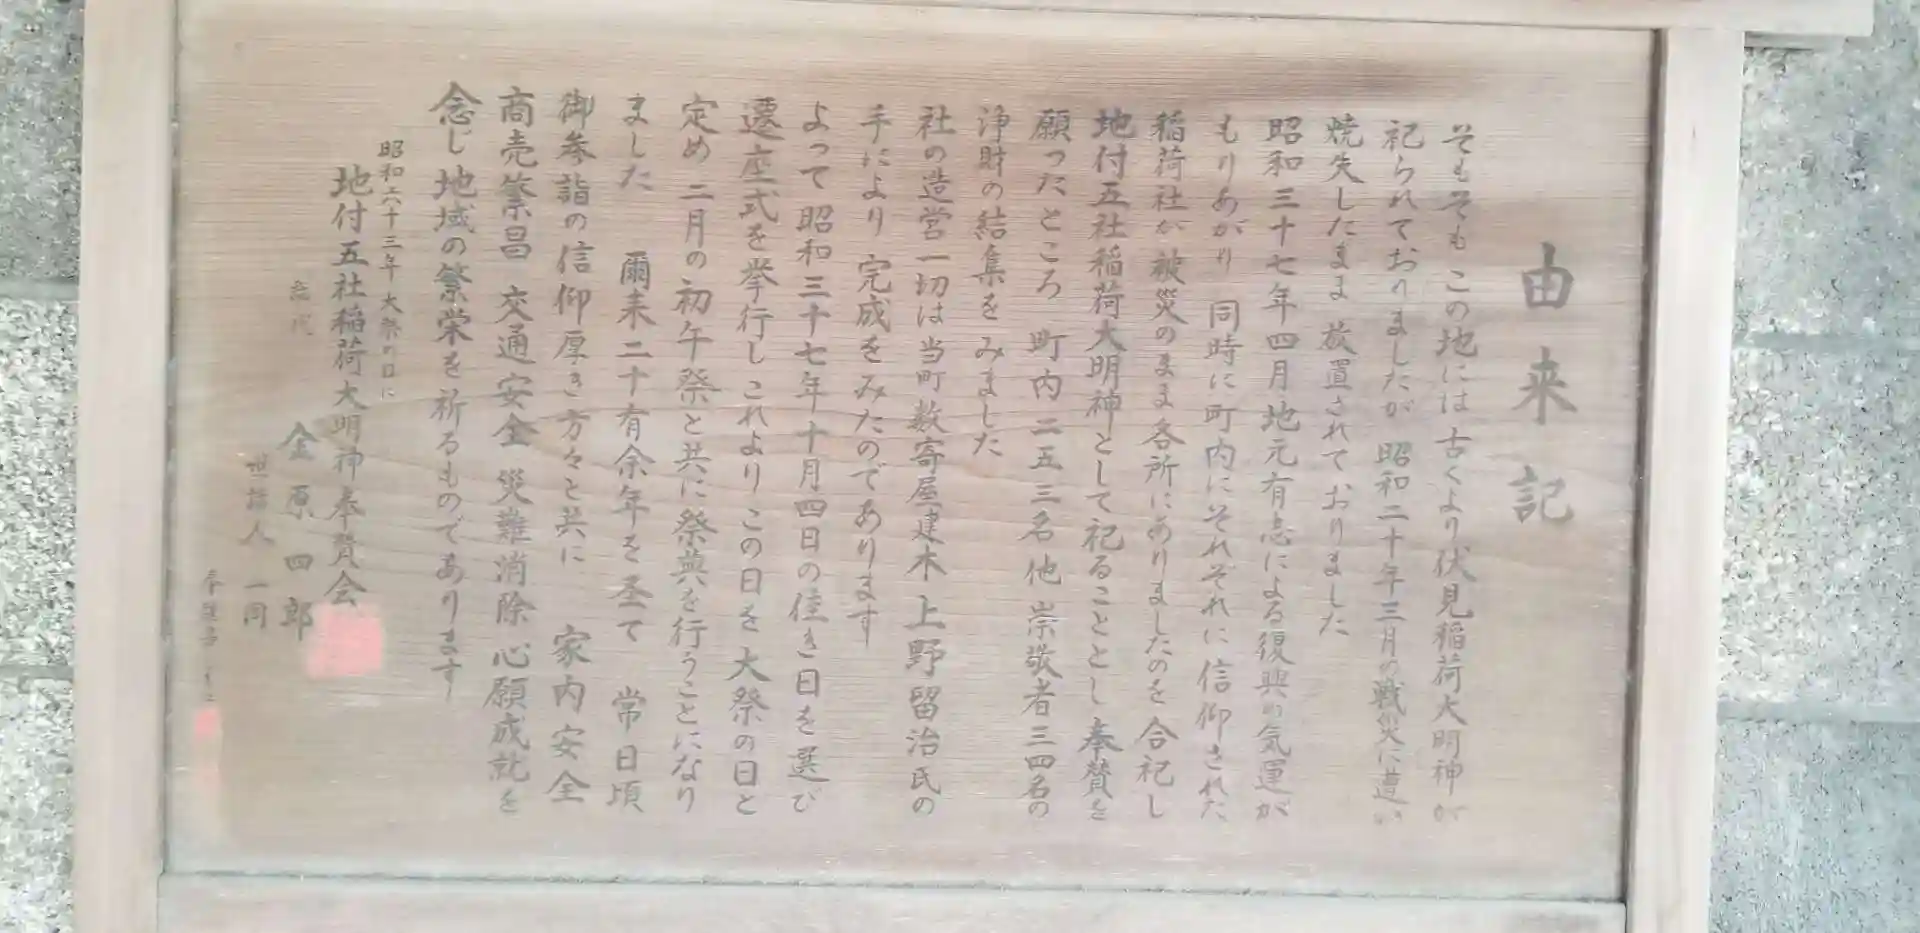 由来記
そもそも この地には古くより伏見稲荷大明神が
祀られておりましたが 昭和二十年三月の戦災に遭い
焼失したまま 放置されておりました
昭和三十七年四月地元有志による復興の気運が
もりあがり 同時に町内にそれぞれに信仰された
稲荷社が被災のまま各所にありましたのを合祀し
地付五社稲荷大明神として祀ることとし奉賛を
願ったところ 町内二五三名他崇敬者三四名の
浄財の結集をみました
社の造営一切は当町数寄屋建木上野留治氏の
手により 完成をみたのであります
よって昭和三十七年十月四日の佳き日を選び
遷座式を挙行しこれよりこの日を大祭の日と
定め 二月の初午祭と共に祭典を行うことになり
ました 爾来二十有余年を圣て 常日頃
御参詣の信仰厚き方々と共に 家内安全
商売繁昌 交通安全 災難消除 心願成就を
念じ地域の繁栄を祈るものであります
昭和六十三年大祭の日に
地付五社稲荷大明神奉賛会
総代 金原四郎
世話人一同